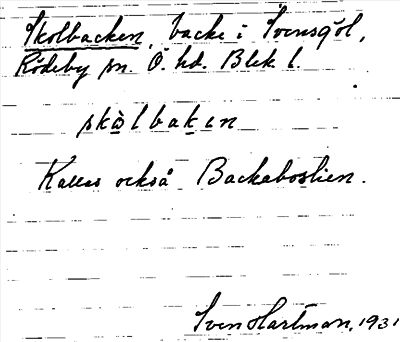 Skolbacken, backe i Svensgöl,
Rödeby sn. Ö. hd. Blek l.
skòlbakɩn
Kallas också Backaboslien.
Sven Hartman, 1931